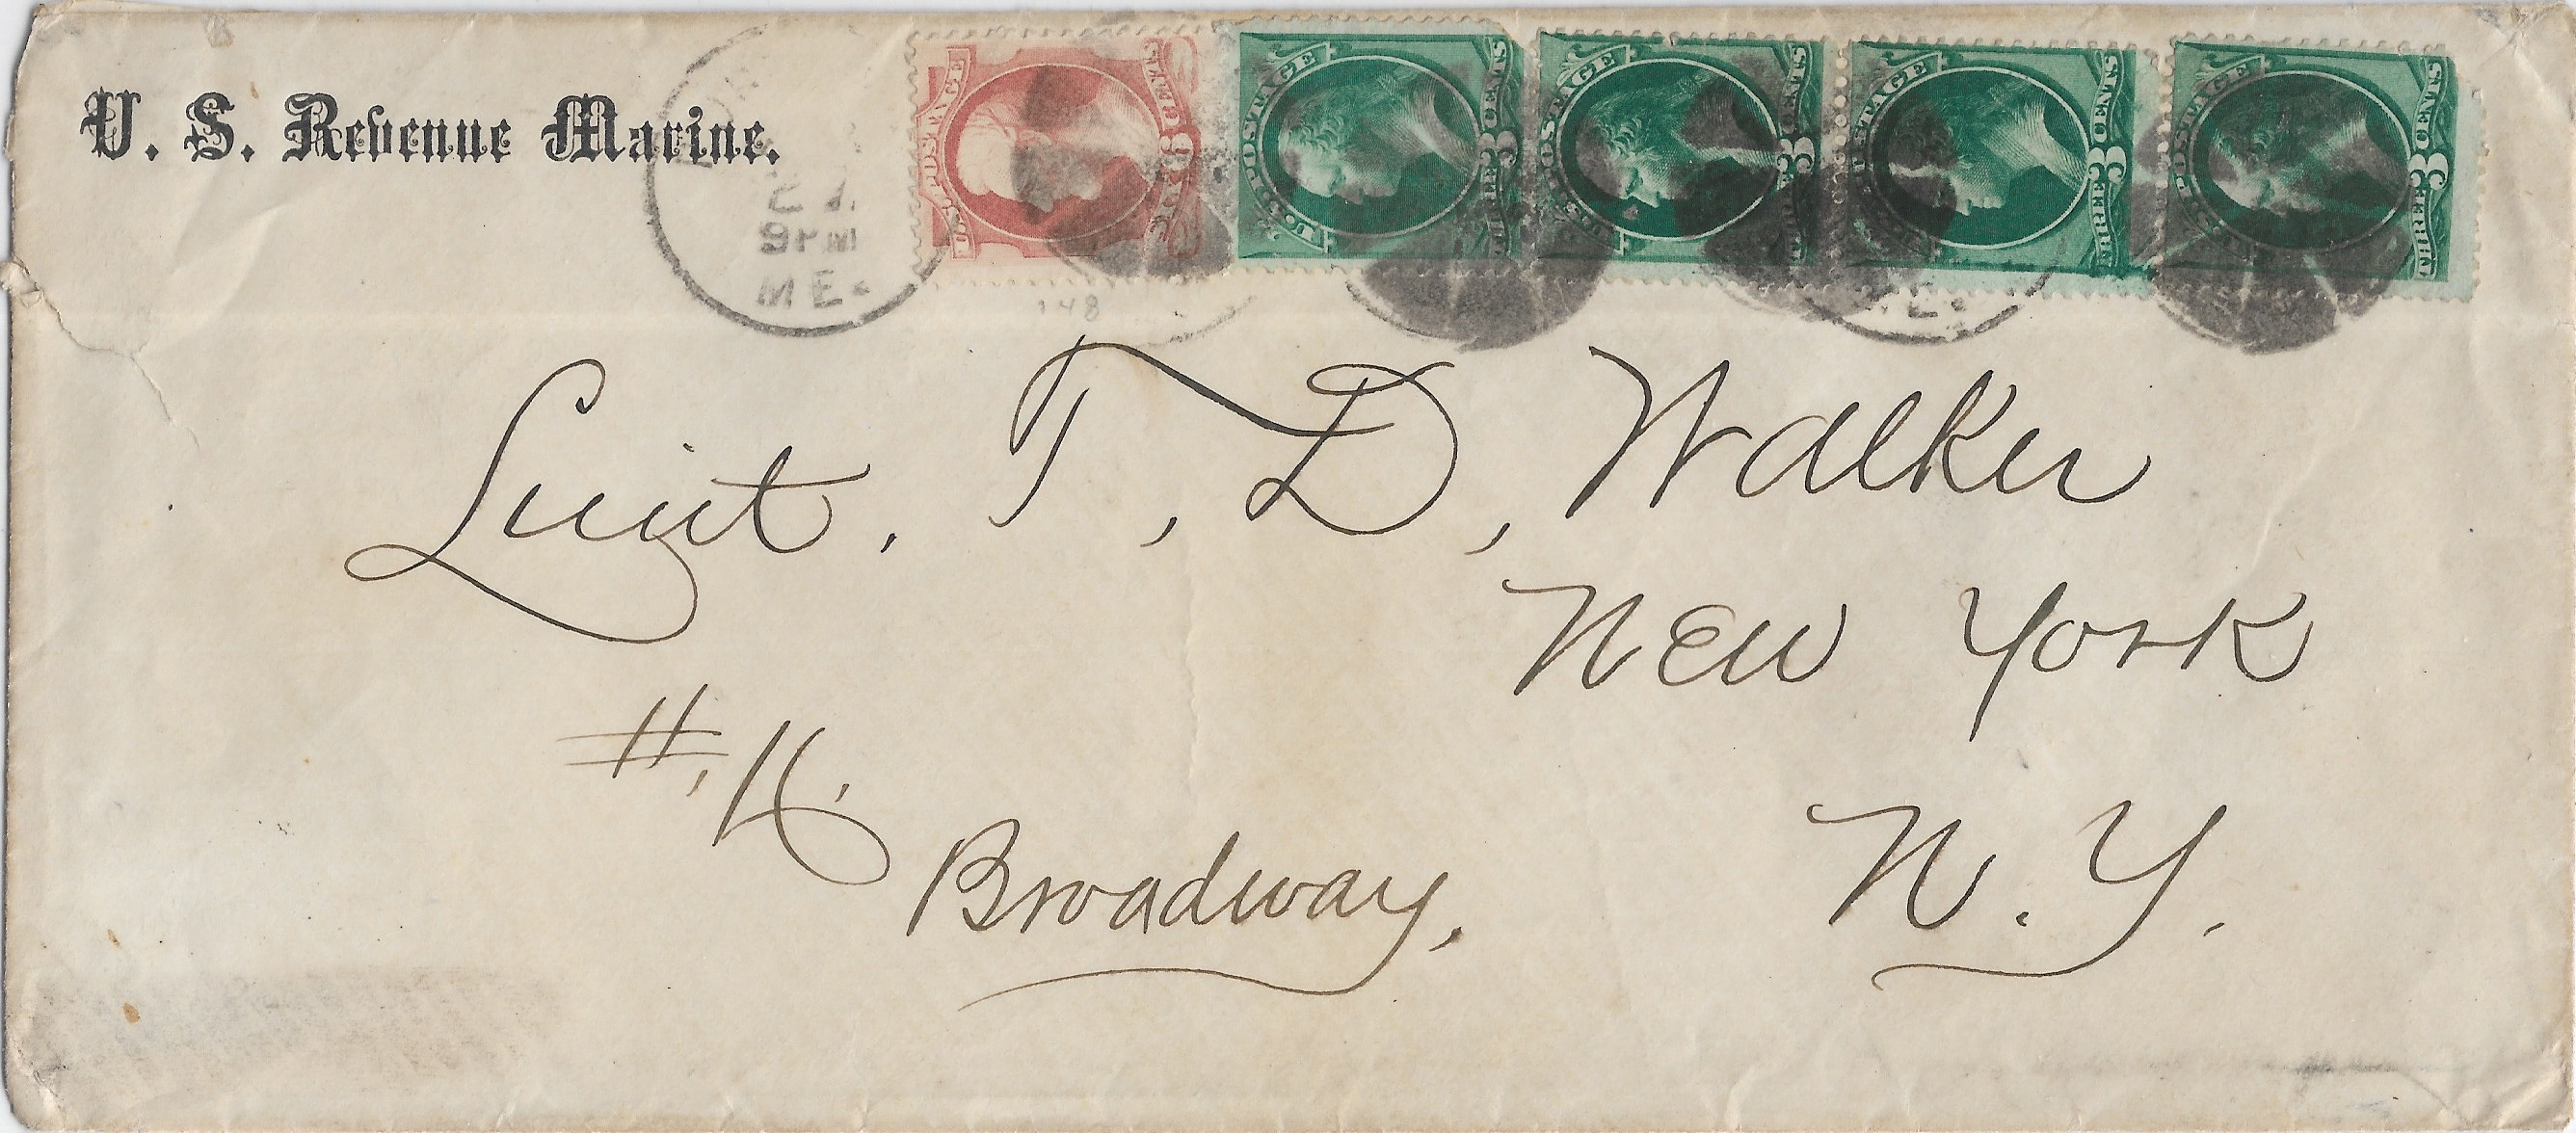 U. S. Revenue Marine.
9PM
ME.
148
U.S. POSTAGE SIX CENTS 6
U.S. POSTAGE THREE CENTS 3
U.S. POSTAGE THREE CENTS 3
POSTAGE THREE CENTS 3
U.S. POSTAGE THREE CENTS 3
Lieut. T. D. Walker
New York
Broadway.
N. Y.